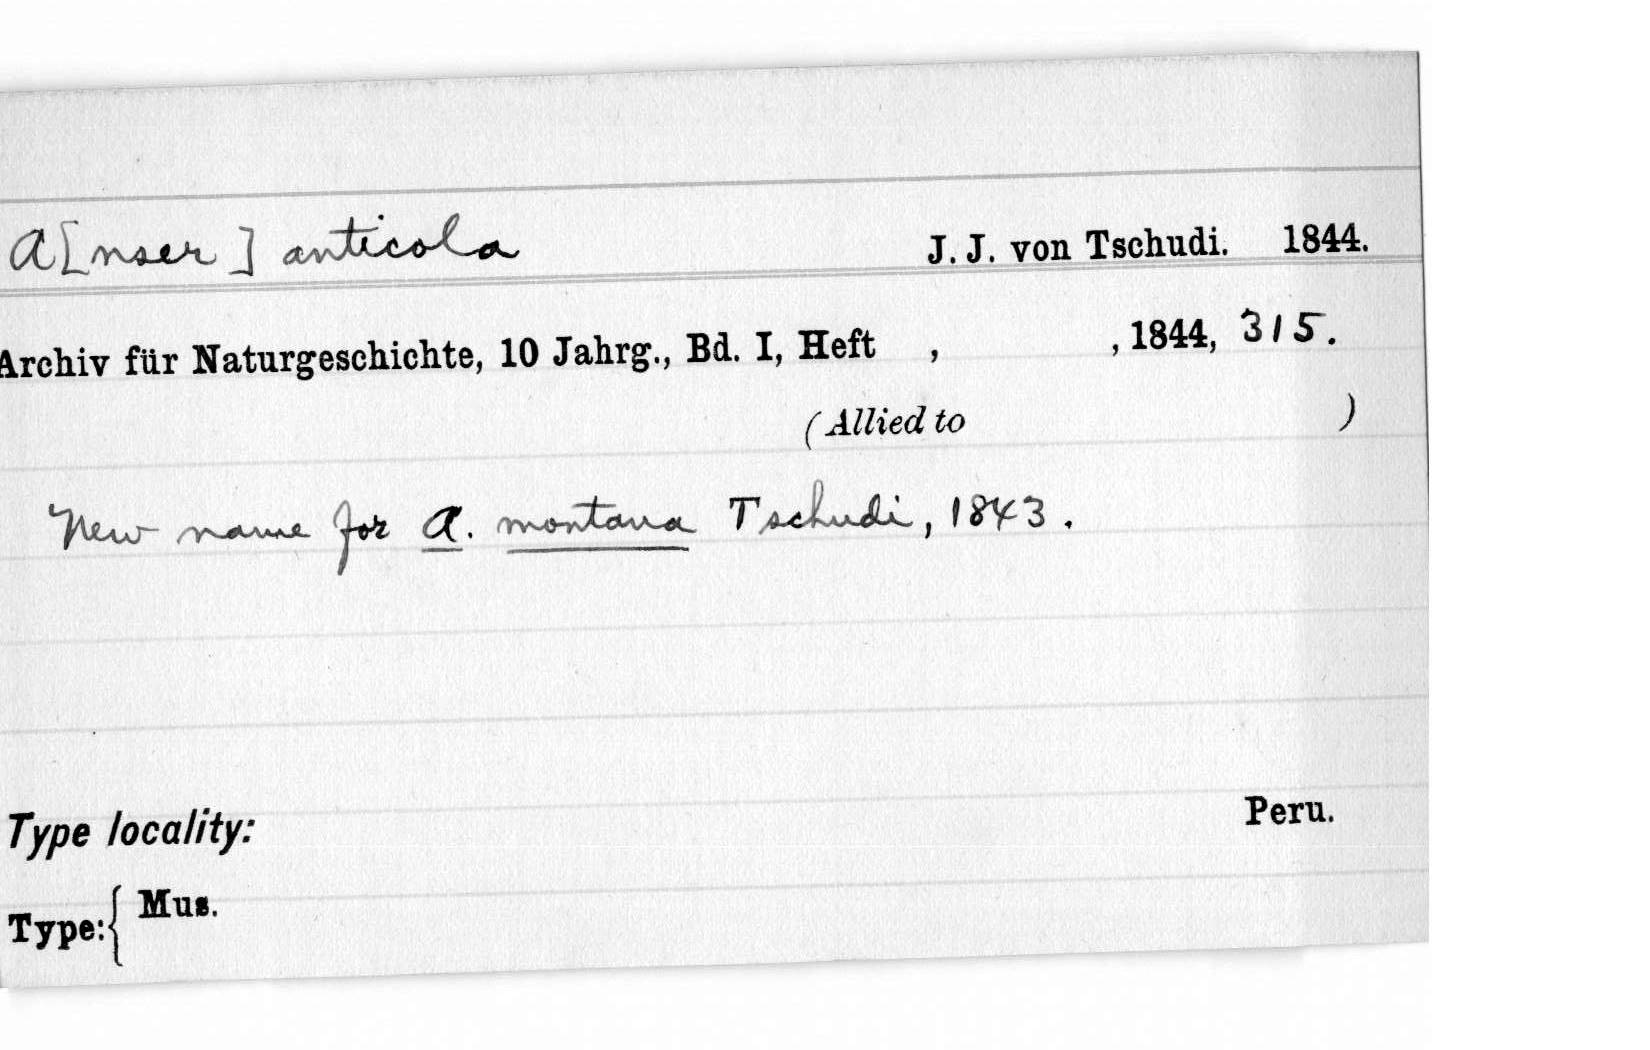 A[nser] anticola J. J. von Tschudi. 1844.
Archiv für Naturgeschichte, 10 Jahrg., Bd. I, Heft , , 1844, 315.
(Allied to )
New name for A. montana Tschudi, 1843.
Type locality: Peru.
Type: { Mus.